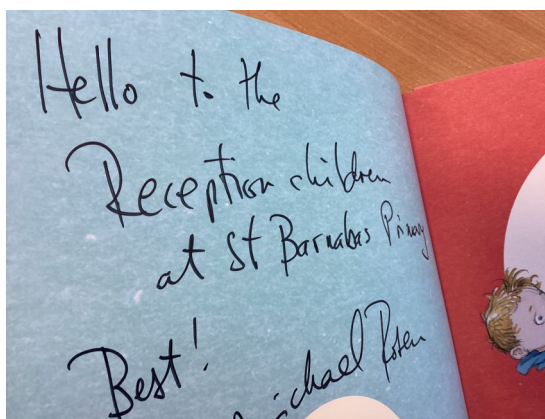 Hello to the
Reception children
at St Barnabas Primary
Best!
Michael Rosen